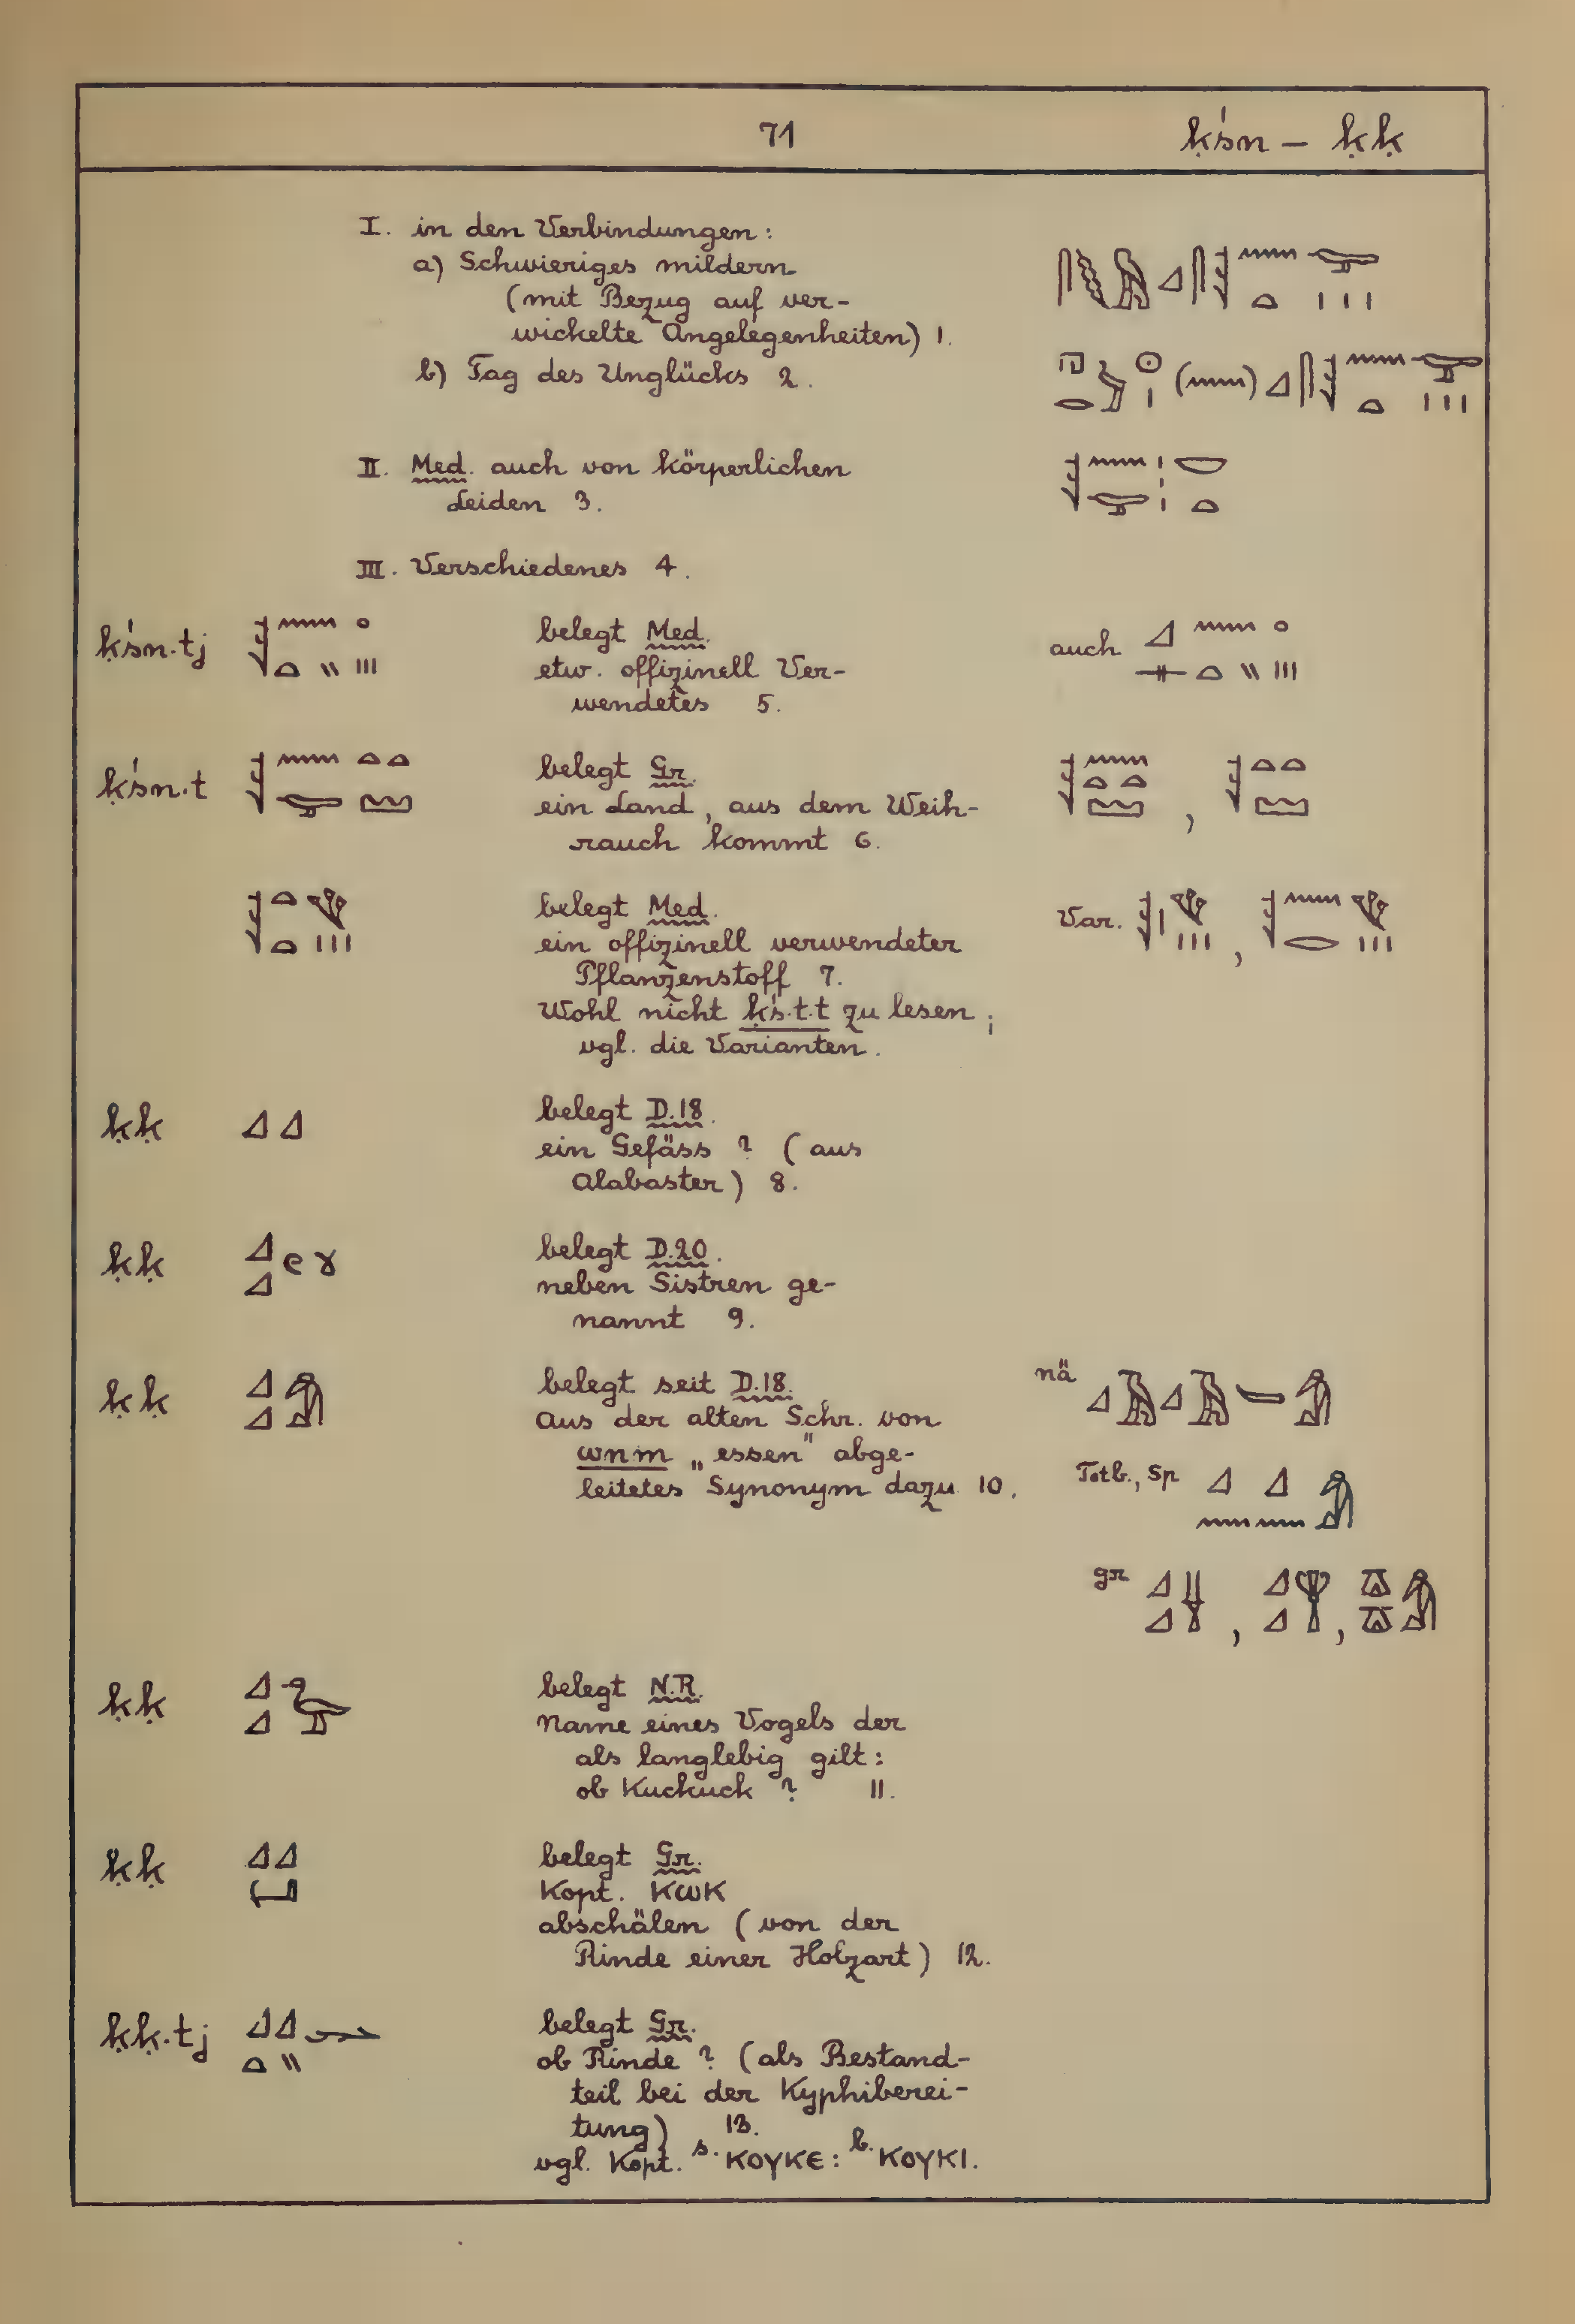 71
ḳśn – ḳḳ
I. in den Verbindungen:
a) Schwieriges mildern
(mit Bezug auf ver-
wickelte Angelegenheiten) 1.
b) Tag des Unglücks 2.
II. Med. auch von körperlichen
Leiden 3.
III. Verschiedenes 4.
ḳśn.tj belegt Med. auch
etw. offizinell Ver-
wendetes 5.
ḳśn.t belegt Gr.
ein Land, aus dem Weih-
rauch kommt 6.
belegt Med. Var.
ein offizinell verwendeter
Pflanzenstoff 7.
Wohl nicht ḳś.t.t zu lesen;
vgl. die Varianten.
ḳḳ belegt D.18.
ein Gefäss ? (aus
Alabaster) 8.
ḳḳ belegt D.20.
neben Sistren ge-
nannt 9.
ḳḳ belegt seit D.18. nä
Aus der alten Schr. von
wnm „essen" abge-
leitetes Synonym dazu 10. Totb., Sp
gr
ḳḳ belegt N.R.
Name eines Vogels der
als langlebig gilt:
ob Kuckuck ? 11.
ḳḳ belegt Gr.
Kopt. ⲕⲱⲕ
abschälen (von der
Rinde einer Holzart) 12.
ḳḳ.tj belegt Gr.
ob Rinde ? (als Bestand-
teil bei der Kyphiberei-
tung) 13.
vgl. Kopt. s. ⲕⲟⲩⲕⲉ: b. ⲕⲟⲩⲕⲓ.